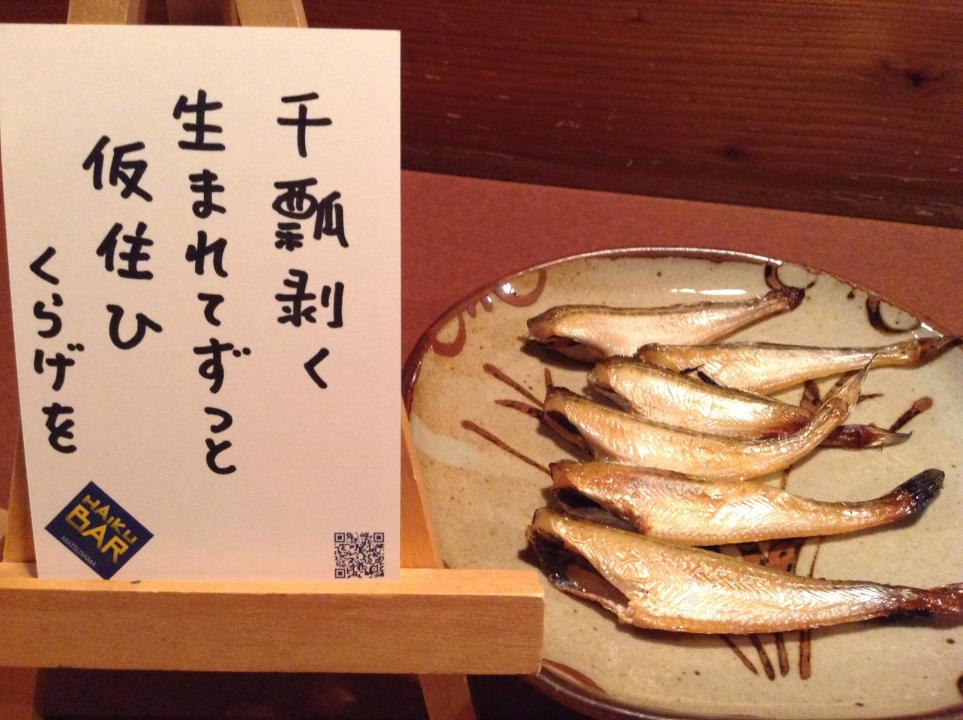 干瓢剥く
生まれてずっと
仮住ひ
くらげを
HAIKU
BAR
MATSUYAMA